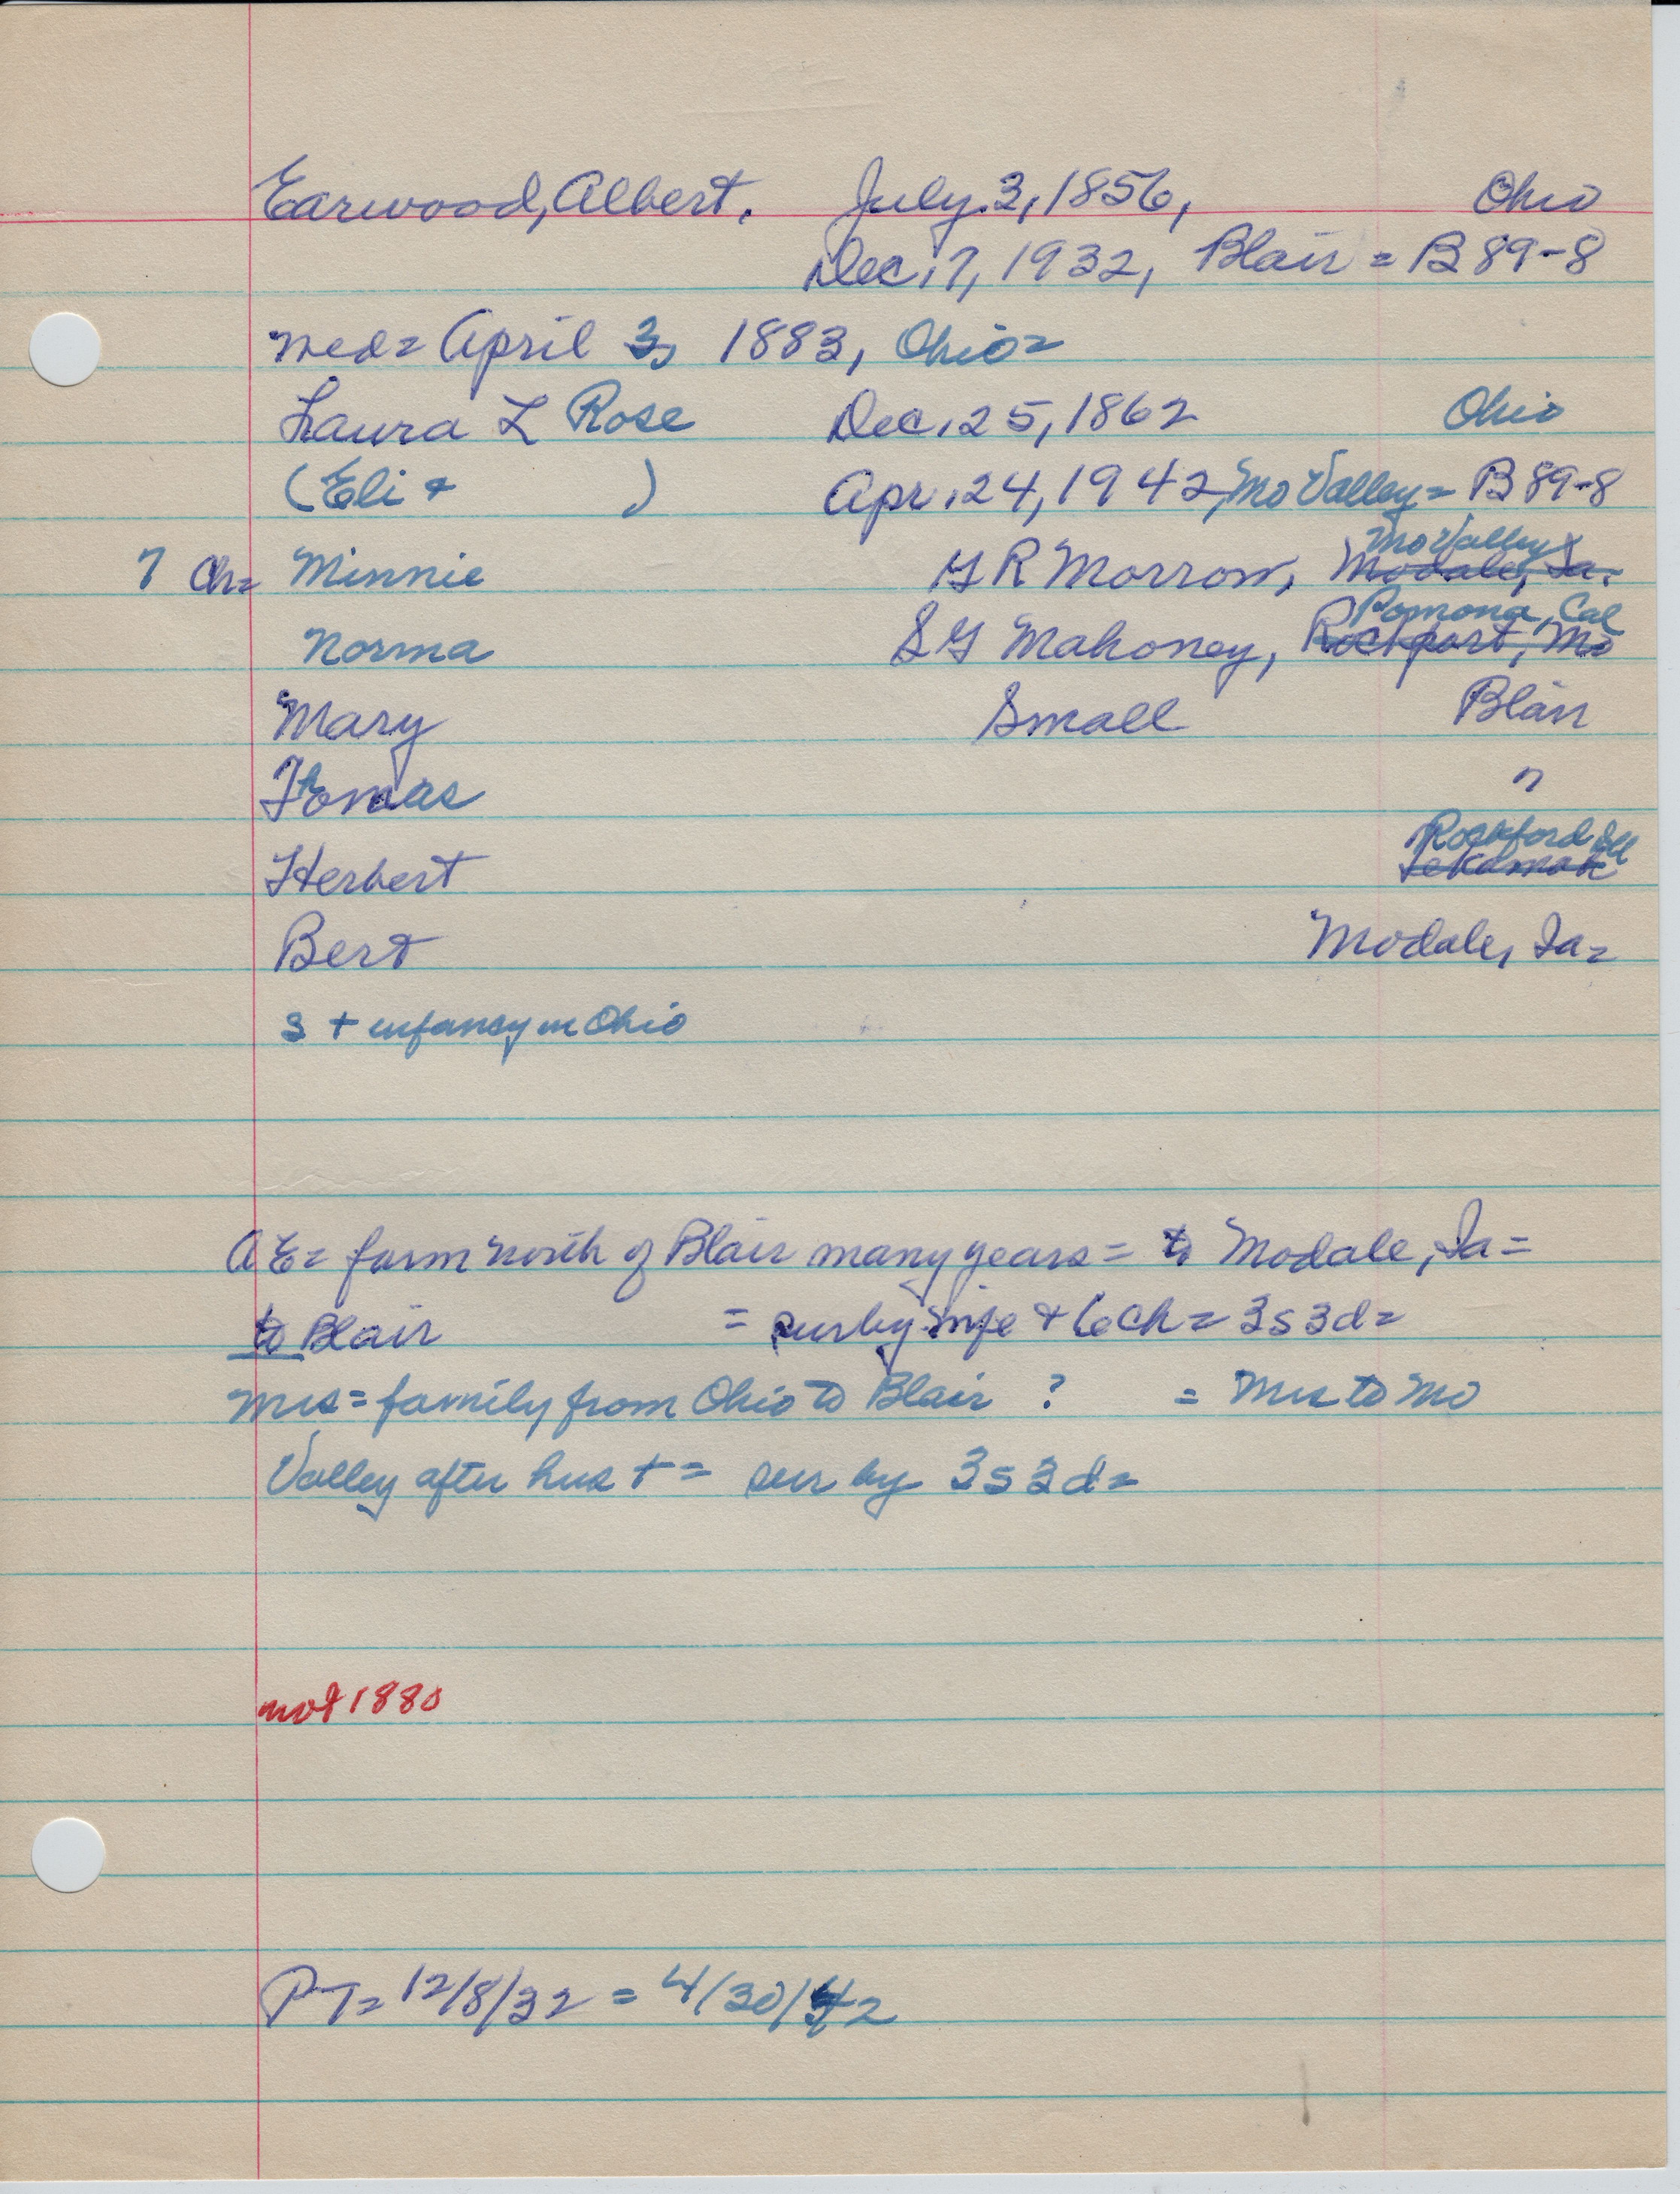 Earwood, Albert. July 3, 1856, Ohio
Dec. 7, 1932, Blair = B 89-8
med= April 3, 1883, Ohio=
Laura L Rose Dec. 25, 1862 Ohio
(Eli + ) Apr. 24, 1942, Mo Valley= B 89-8
Mo Valley
7 Ch= Minnie G R Morrow, Modale, Ia.
Pomona, Cal
Norma S G Mahoney, Rockport, Mo
Mary Small Blair
Thomas "
Rockford Ill
Herbert Tekamah
Bert Modale, Ia=
s + infancy in Ohio
A E= farm north of Blair many years = to Modale, Ia =
to Blair = sur by wife + 6 ch = 3s 3d=
Mrs = family from Ohio to Blair ? = Mrs to Mo
Valley after hus + = sur by 3s 3d=
not 1880
PT= 12/8/32 = 4/30/42